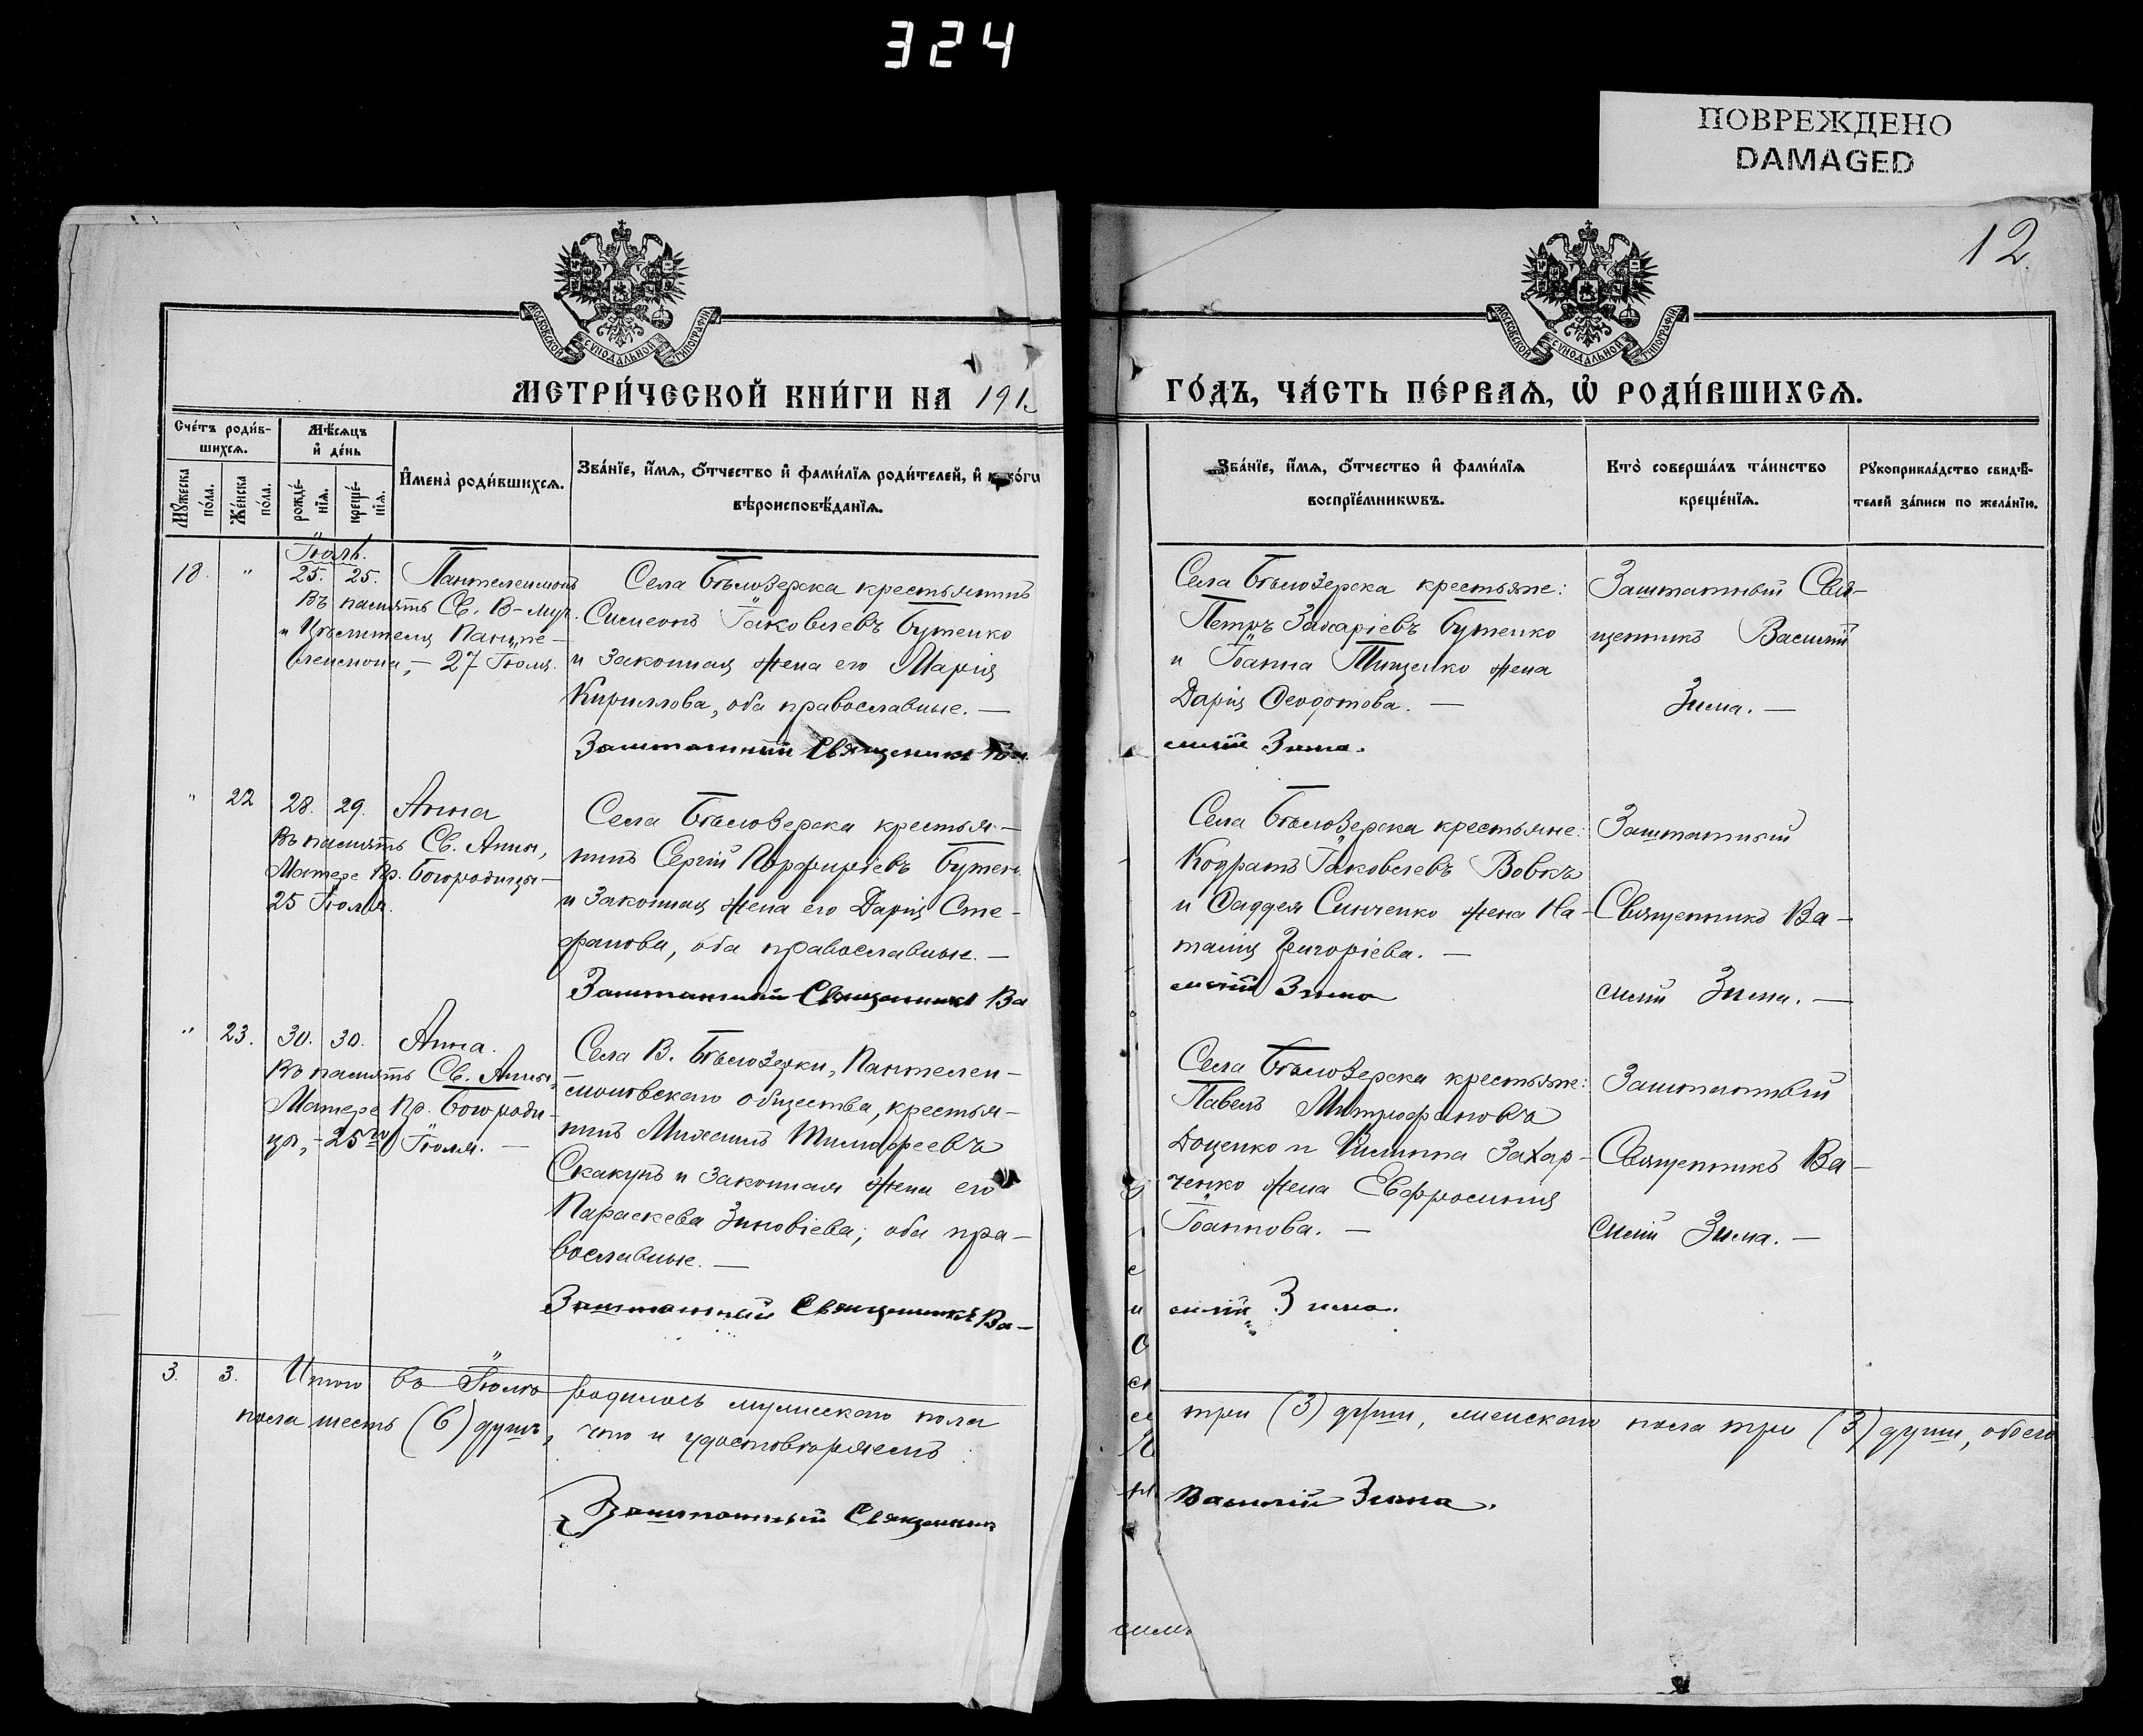 324
ПОВРЕЖДЕНО
DAMAGED
12.
МОСКОВСКОЙ СѴНОДАЛЬНОЙ ТИПОГРАФІИ
МОСКОВСКОЙ СѴНОДАЛЬНОЙ ТИПОГРАФІИ
МЕТРИ́ЧЕСКОЙ КНИ́ГИ НА 191
ГО́ДЪ, ЧА́СТЬ ПЕ́РВАѦ, Ѽ РОДИ́ВШИХСѦ.
Сче́тъ роди́в-
шихсѧ.
Мѣ́сѧцъ
и҆ де́нь
Мꙋ́жеска по́ла.
Же́нска по́ла.
рожде́-нїѧ.
креще́-нїѧ.
И҆мена̀ роди́вшихсѧ.
Зва́нїе, и҆́мѧ, ѻ҆́тчество и҆ фами́лїѧ роди́телей, и҆ како́гѡ
вѣроисповѣ́данїѧ.
Зва́нїе, и҆́мѧ, ѻ҆́тчество и҆ фами́лїѧ
воспрїе́мникѡвъ.
Кто̀ соверша́лъ та́инство
креще́нїѧ.
Рꙋкоприкла́дство свидѣ́-
телей за́писи по жела́нїю.
Іюль.
18. " 25. 25. Пантелеимонъ
Въ память Св. В-муч.
и Цѣлителя Панте-
леимона, – 27 Іюля.
Села Бѣлозерска крестьянинъ
Симеонъ Іаковлевъ Бутенко
и законная жена его Марія
Кириллова, оба православные. —
Заштатный Священникъ Ва-
Села Бѣлозерска крестьяне:
Петръ Захаріевъ Бутенко
и Іоанна Тищенко жена
Дарія Ѳеодотова. —
силій Зима.
Заштатный Свя-
щенникъ Василій
Зима. —
" 22 28. 29. Анна
Въ память Св. Анны,
Матере Пр. Богородицы —
25 Іюля.
Села Бѣлозерска крестья-
нинъ Сергій Порфиріевъ Бутенко
и законная жена его Дарія Сте-
фанова, оба православные. —
Заштатный Священникъ Ва
Села Бѣлозерска крестьяне:
Кодратъ Іаковлевъ Вовкъ
и Ѳаддея Синченко жена На-
талія Григоріева. —
силій Зима
Заштатный
Священникъ Ва-
силій Зима. —
" 23. 30. 30. Анна.
Въ память Св. Анны,
Матере Пр. Богороди-
цы, – 25го Іюля. —
Села В. Бѣлозерки, Пантелеи-
моновскаго общества, крестья-
нинъ Михаилъ Тимофеевъ
Скакунъ и законная жена его
Параскева Зиновіева; оба пра-
вославные. —
Заштатный Священникъ Ва-
Села Бѣлозерска крестьяне:
Павелъ Митрофановъ
Доценко и Филиппа Захар-
ченко жена Евфросинія
Іоаннова. —
силій Зима.
Заштатный
Священникъ Ва-
силій Зима. —
3. 3. Итого въ Іюлѣ родилось мужескаго пола
три (3) души, женскаго пола три (3) души, обоего
пола шесть (6) душъ, что и удостовѣряемъ
Заштатный Священникъ
Василій Зима.